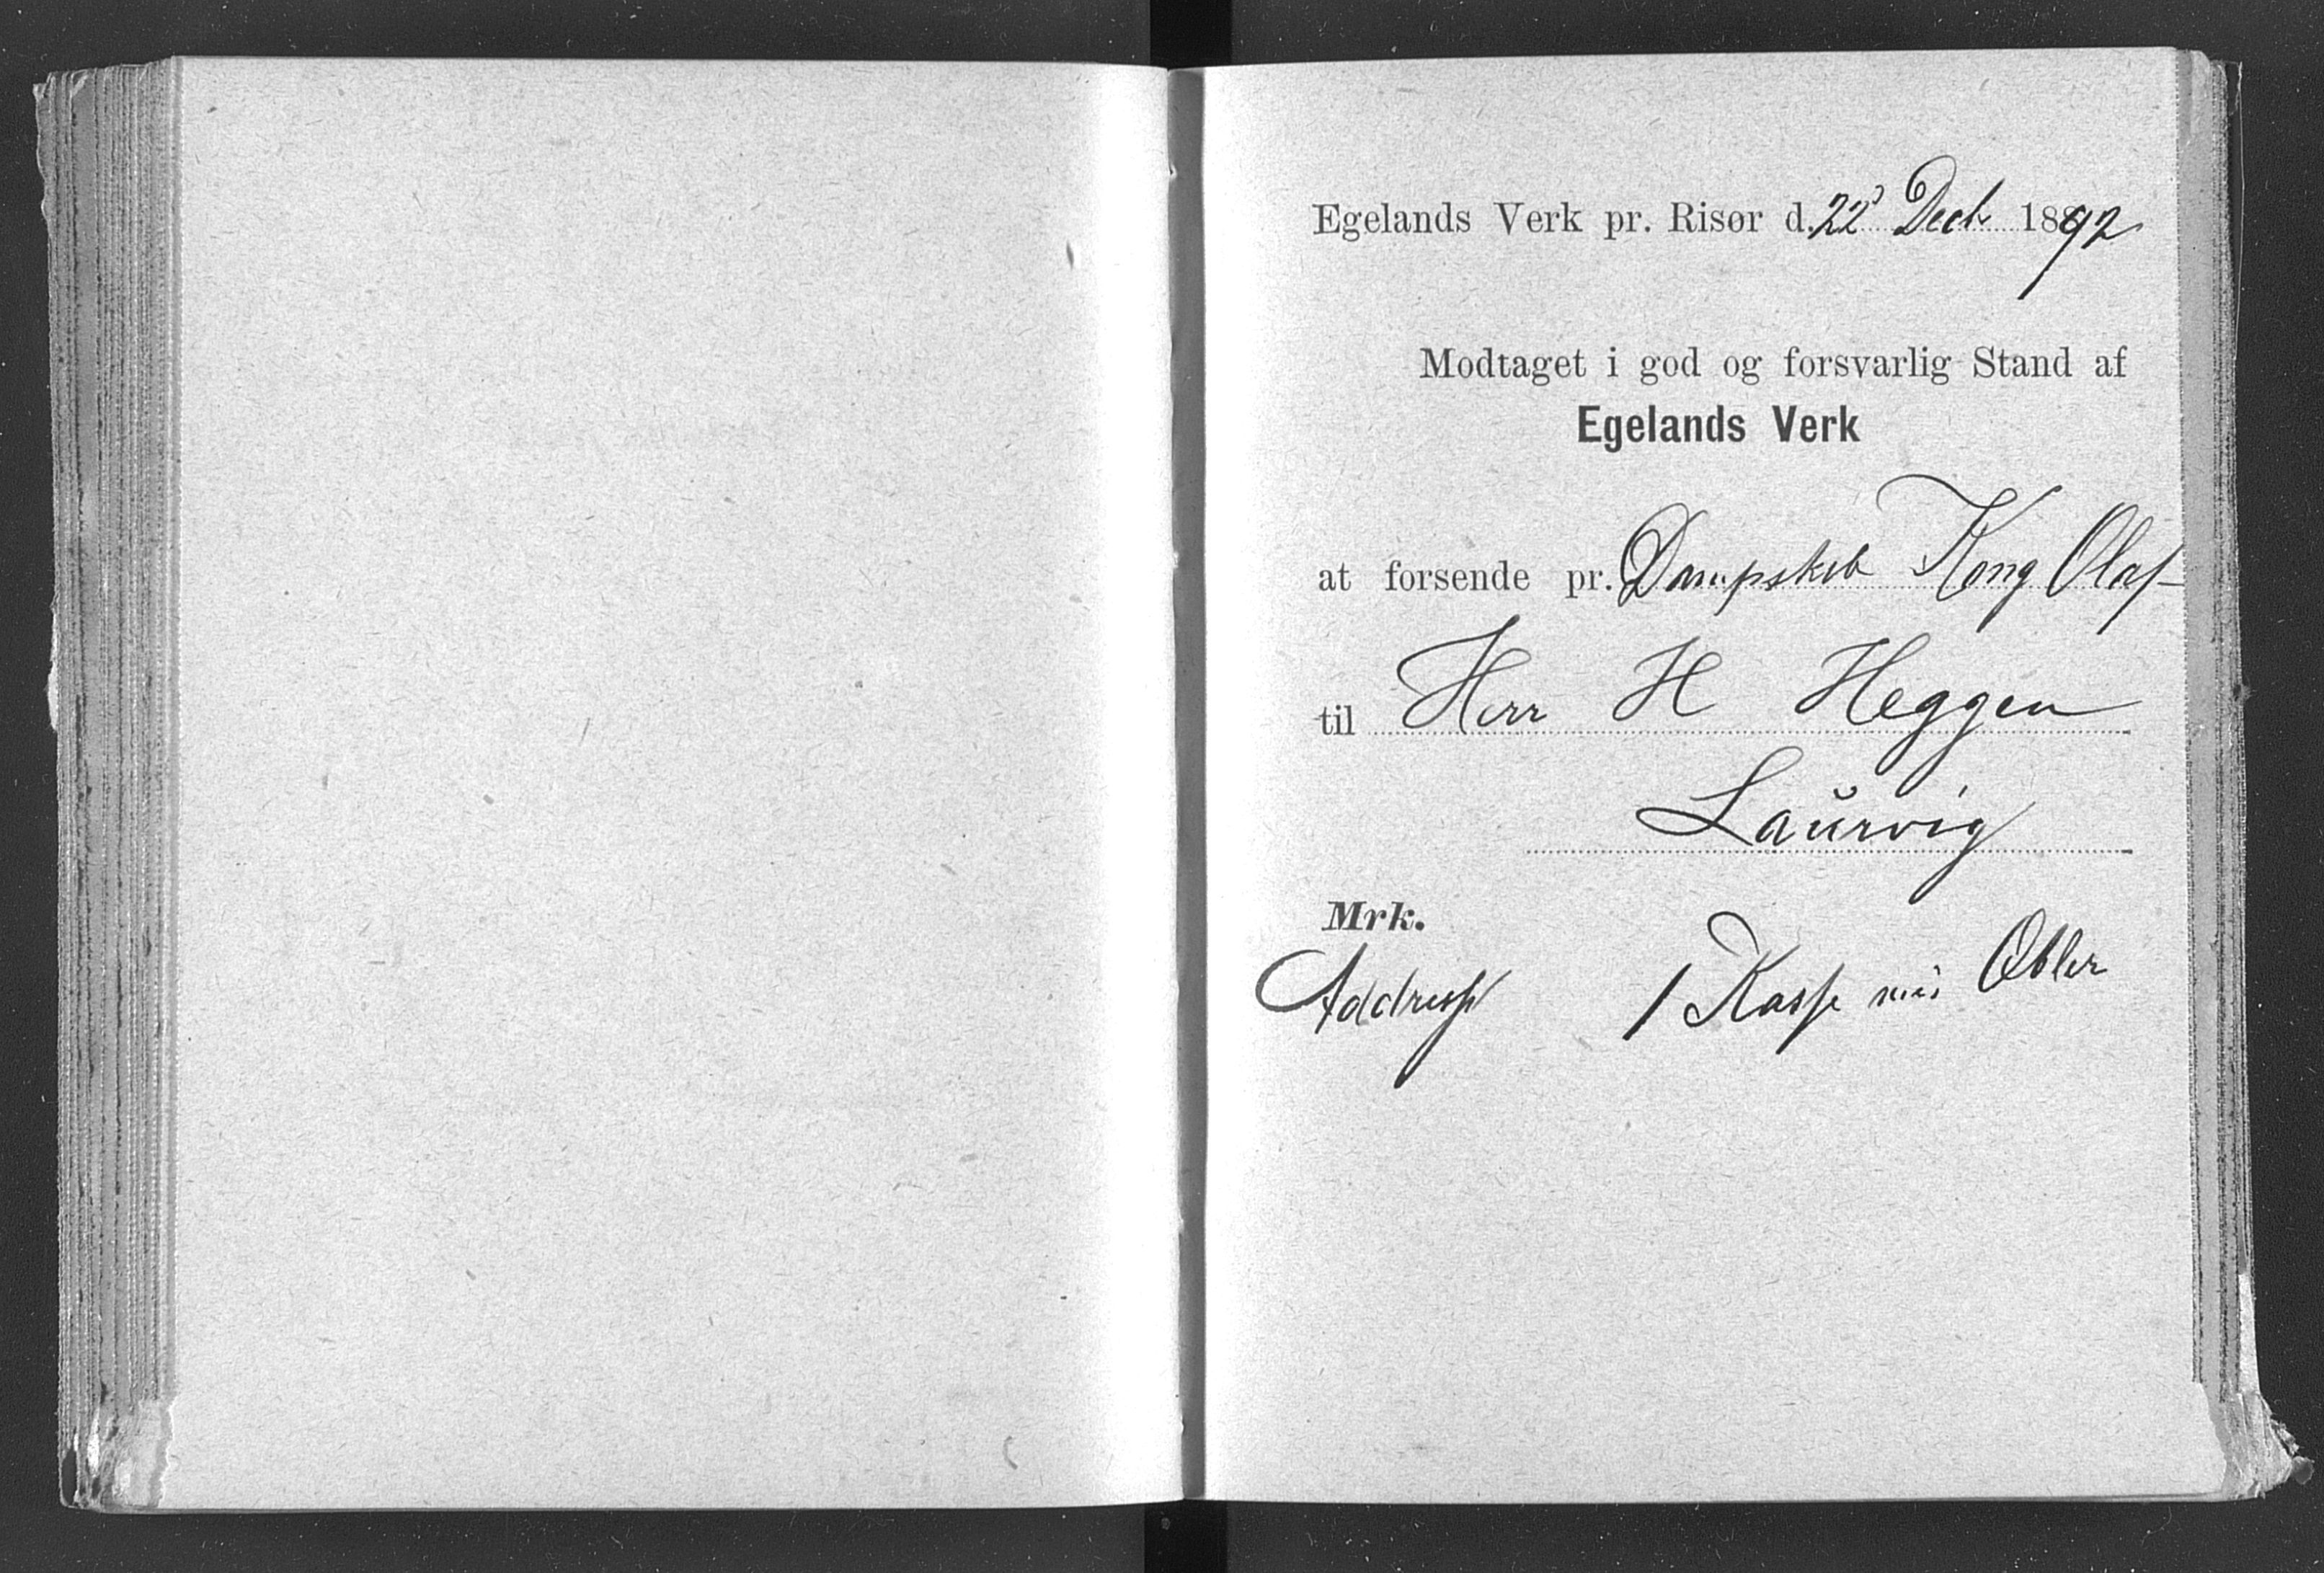 Egelands Verk pr. Risør d. 22' Decb 1892
Modtaget i god og forsvarlig Stand af
Egelands Verk
at forsende pr. Dampskib Kong Olaf
til Herr H Heggen
Laurvig
Mrk.
Addresse 1 Kasse Æbler